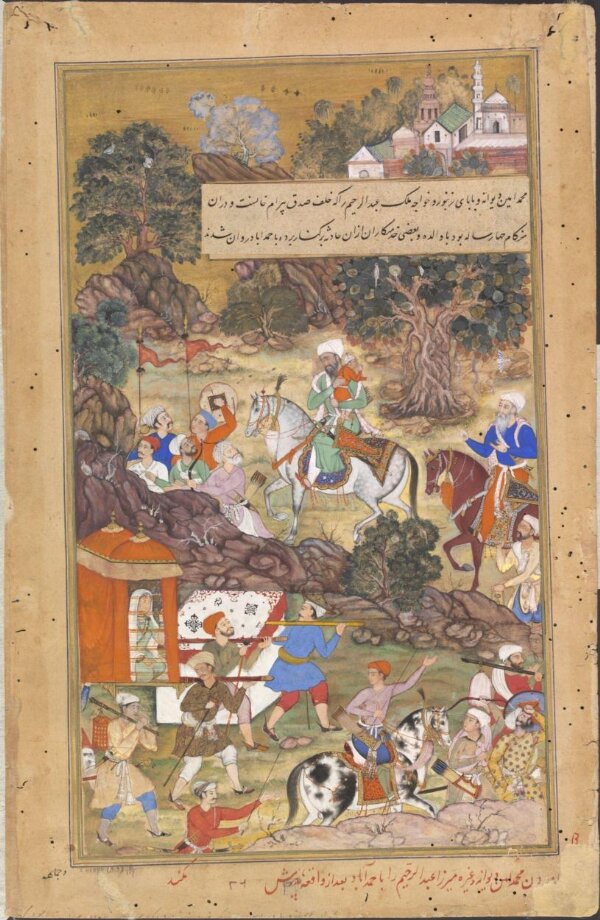 محمد امین دیوانه و بابای زنبور و خواجه ملک عبدالرحیم را که خلف صدق بیرام خانست و دران
هنگام چهار ساله بود با والده و بعضی خدمتکاران ازان حادثه برکنار برده باحمداباد روان شدند
محمد امین دیوانه وغیره میرزا عبدالرحیم را باحمدآباد بعد از واقعه